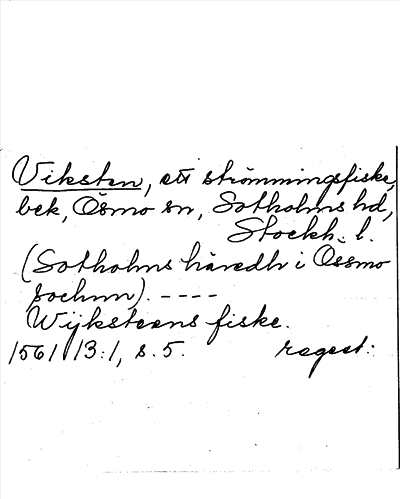 Viksten, ett strömmingsfiske,
bek, Ösmo sn, Sotholms hd,
Stockh. l.
(Sotholms häredh i Össmo
sochnn). ----
Wijksteens fiske.
1561 13:1, s. 5. regest: